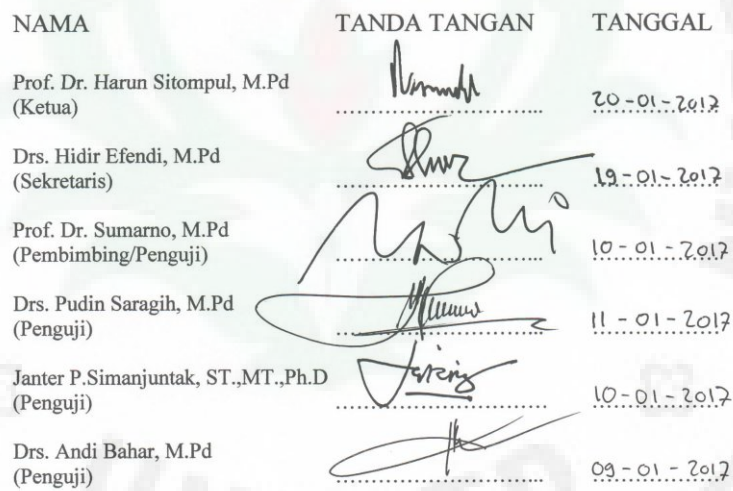 NAMA TANDA TANGAN TANGGAL
Prof. Dr. Harun Sitompul, M.Pd
(Ketua) 20-01-2017
Drs. Hidir Efendi, M.Pd
(Sekretaris) 19-01-2017
Prof. Dr. Sumarno, M.Pd
(Pembimbing/Penguji) 10-01-2017
Drs. Pudin Saragih, M.Pd
(Penguji) 11-01-2017
Janter P.Simanjuntak, ST.,MT.,Ph.D
(Penguji) 10-01-2017
Drs. Andi Bahar, M.Pd
(Penguji) 09-01-2017